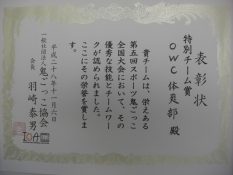 表彰状
特別チーム賞
OWC体爽部 殿
貴チームは、栄えある
第五回スポーツ鬼ごっこ
全国大会において、その
優秀な技能とチームワー
クが認められました。
ここにその栄誉を賞しま
す。
平成二十八年十一月六日
一般社団法人 鬼ごっこ協会
会長 羽崎泰男